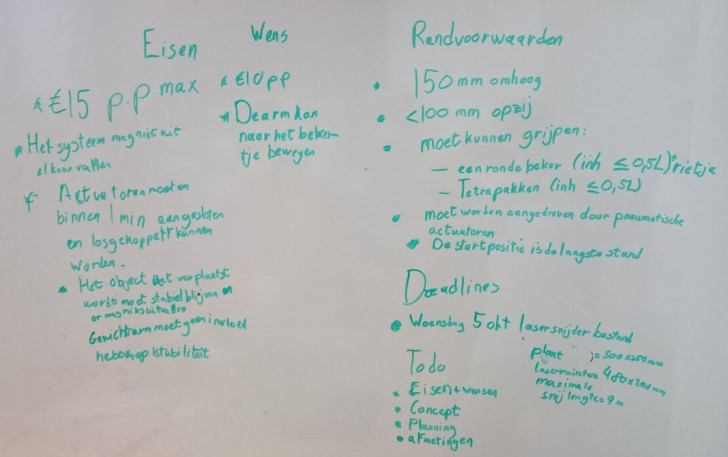 Eisen
* €15 p.p max
* Het systeem mag niet uit
elkaar vallen
* Actuatoren moeten
binnen 1 min aangesloten
en losgekoppelt kunnen
worden.
• Het object dat verplaatst
wordt moet stabiel blijven en
er mag niks uitvallen
Gewicht arm moet geen invloed
hebben op stabiliteit
Wens
* €10 pp
* De arm kan
naar het beker-
tje bewegen
Randvoorwaarden
• 150 mm omhoog
• <100 mm opzij
• moet kunnen grijpen:
— een ronde beker (inh ≤ 0,5L)+rietje
— Tetrapakken (inh ≤ 0,5L)
• moet worden aangedreven door pneumatische
actuatoren
• De startpositie is de laagste stand
Deadlines
• Woensdag 5 okt lasersnijder bestand
plaat = 500x250mm
480x240mm
maximale
snijlengte = 9m
Todo
• Eisen + wensen
• Concept
• Planning
• afmetingen